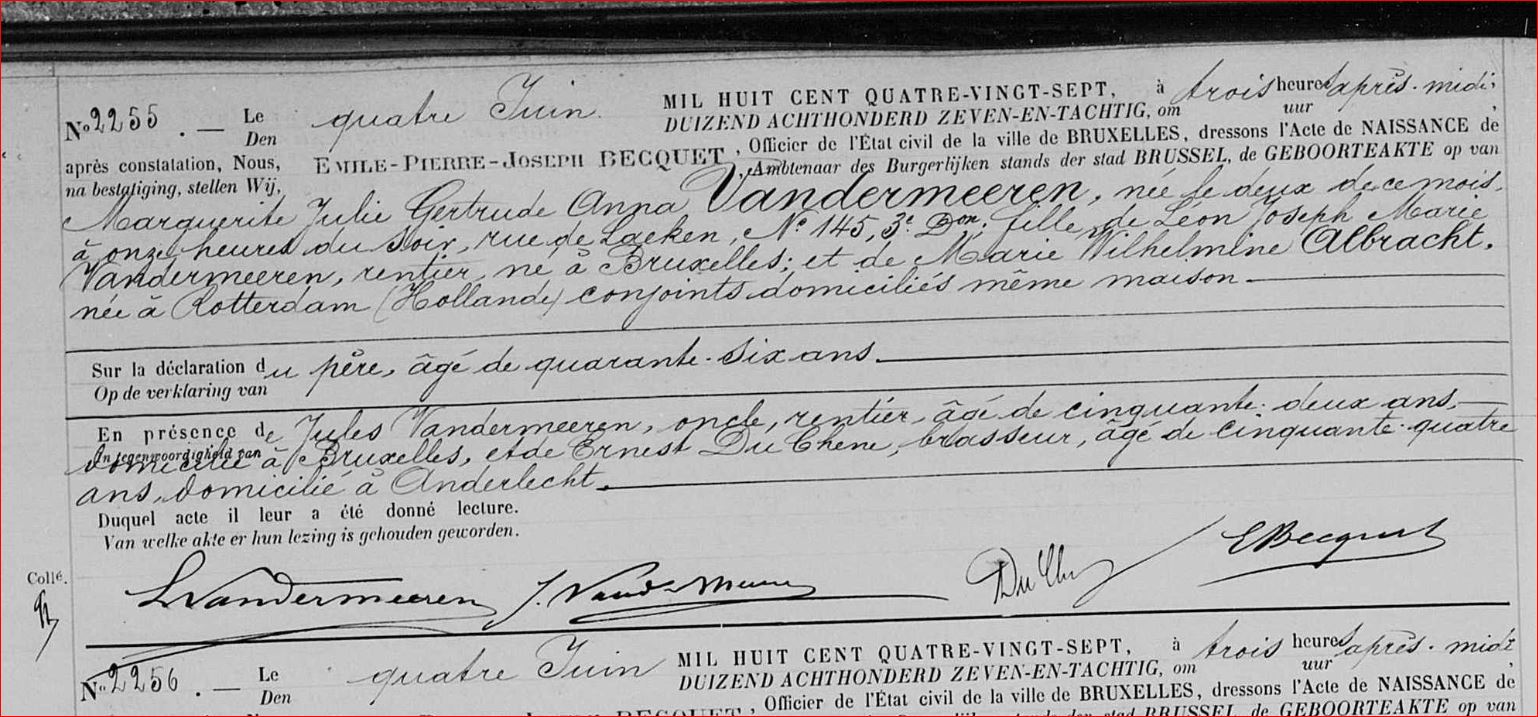 No 2255. — Le quatre Juin. MIL HUIT CENT QUATRE-VINGT-SEPT, à trois heures après-midi,
Den DUIZEND ACHTHONDERD ZEVEN-EN-TACHTIG, om uur ,
après constatation, Nous, EMILE-PIERRE-JOSEPH BECQUET, Officier de l'État civil de la ville de BRUXELLES, dressons l'Acte de NAISSANCE de
na bestatiging, stellen Wij, Ambtenaar des Burgerlijken stands der stad BRUSSEL, de GEBOORTEAKTE op van
Marguerite Julie Gertrude Anna Vandermeeren, née le deux de ce mois,
à onze heures du soir, rue de Laeken, No 145, 3e Don; fille de Léon Joseph Marie
Vandermeeren, rentier, né à Bruxelles; et de Marie Wilhelmine Albracht,
née à Rotterdam (Hollande) conjoints domiciliés même maison —
Sur la déclaration du père, âgé de quarante-six ans. —
Op de verklaring van
En présence de Jules Vandermeeren, oncle, rentier, âgé de cinquante-deux ans, —
In tegenwoordigheid van
domicilié à Bruxelles, et de Ernest Du Chene, brasseur, âgé de cinquante-quatre
ans, domicilié à Anderlecht. —
Duquel acte il leur a été donné lecture.
Van welke akte er hun lezing is gehouden geworden.
Collé.
LVandermeeren J. Vandermeeren Du Chene EBecquet
No 2256. — Le quatre Juin MIL HUIT CENT QUATRE-VINGT-SEPT, à trois heures après-midi
Den DUIZEND ACHTHONDERD ZEVEN-EN-TACHTIG, om uur ,
, Officier de l'État civil de la ville de BRUXELLES, dressons l'Acte de NAISSANCE de
BECQUET stands der stad BRUSSEL, de GEBOORTEAKTE op van